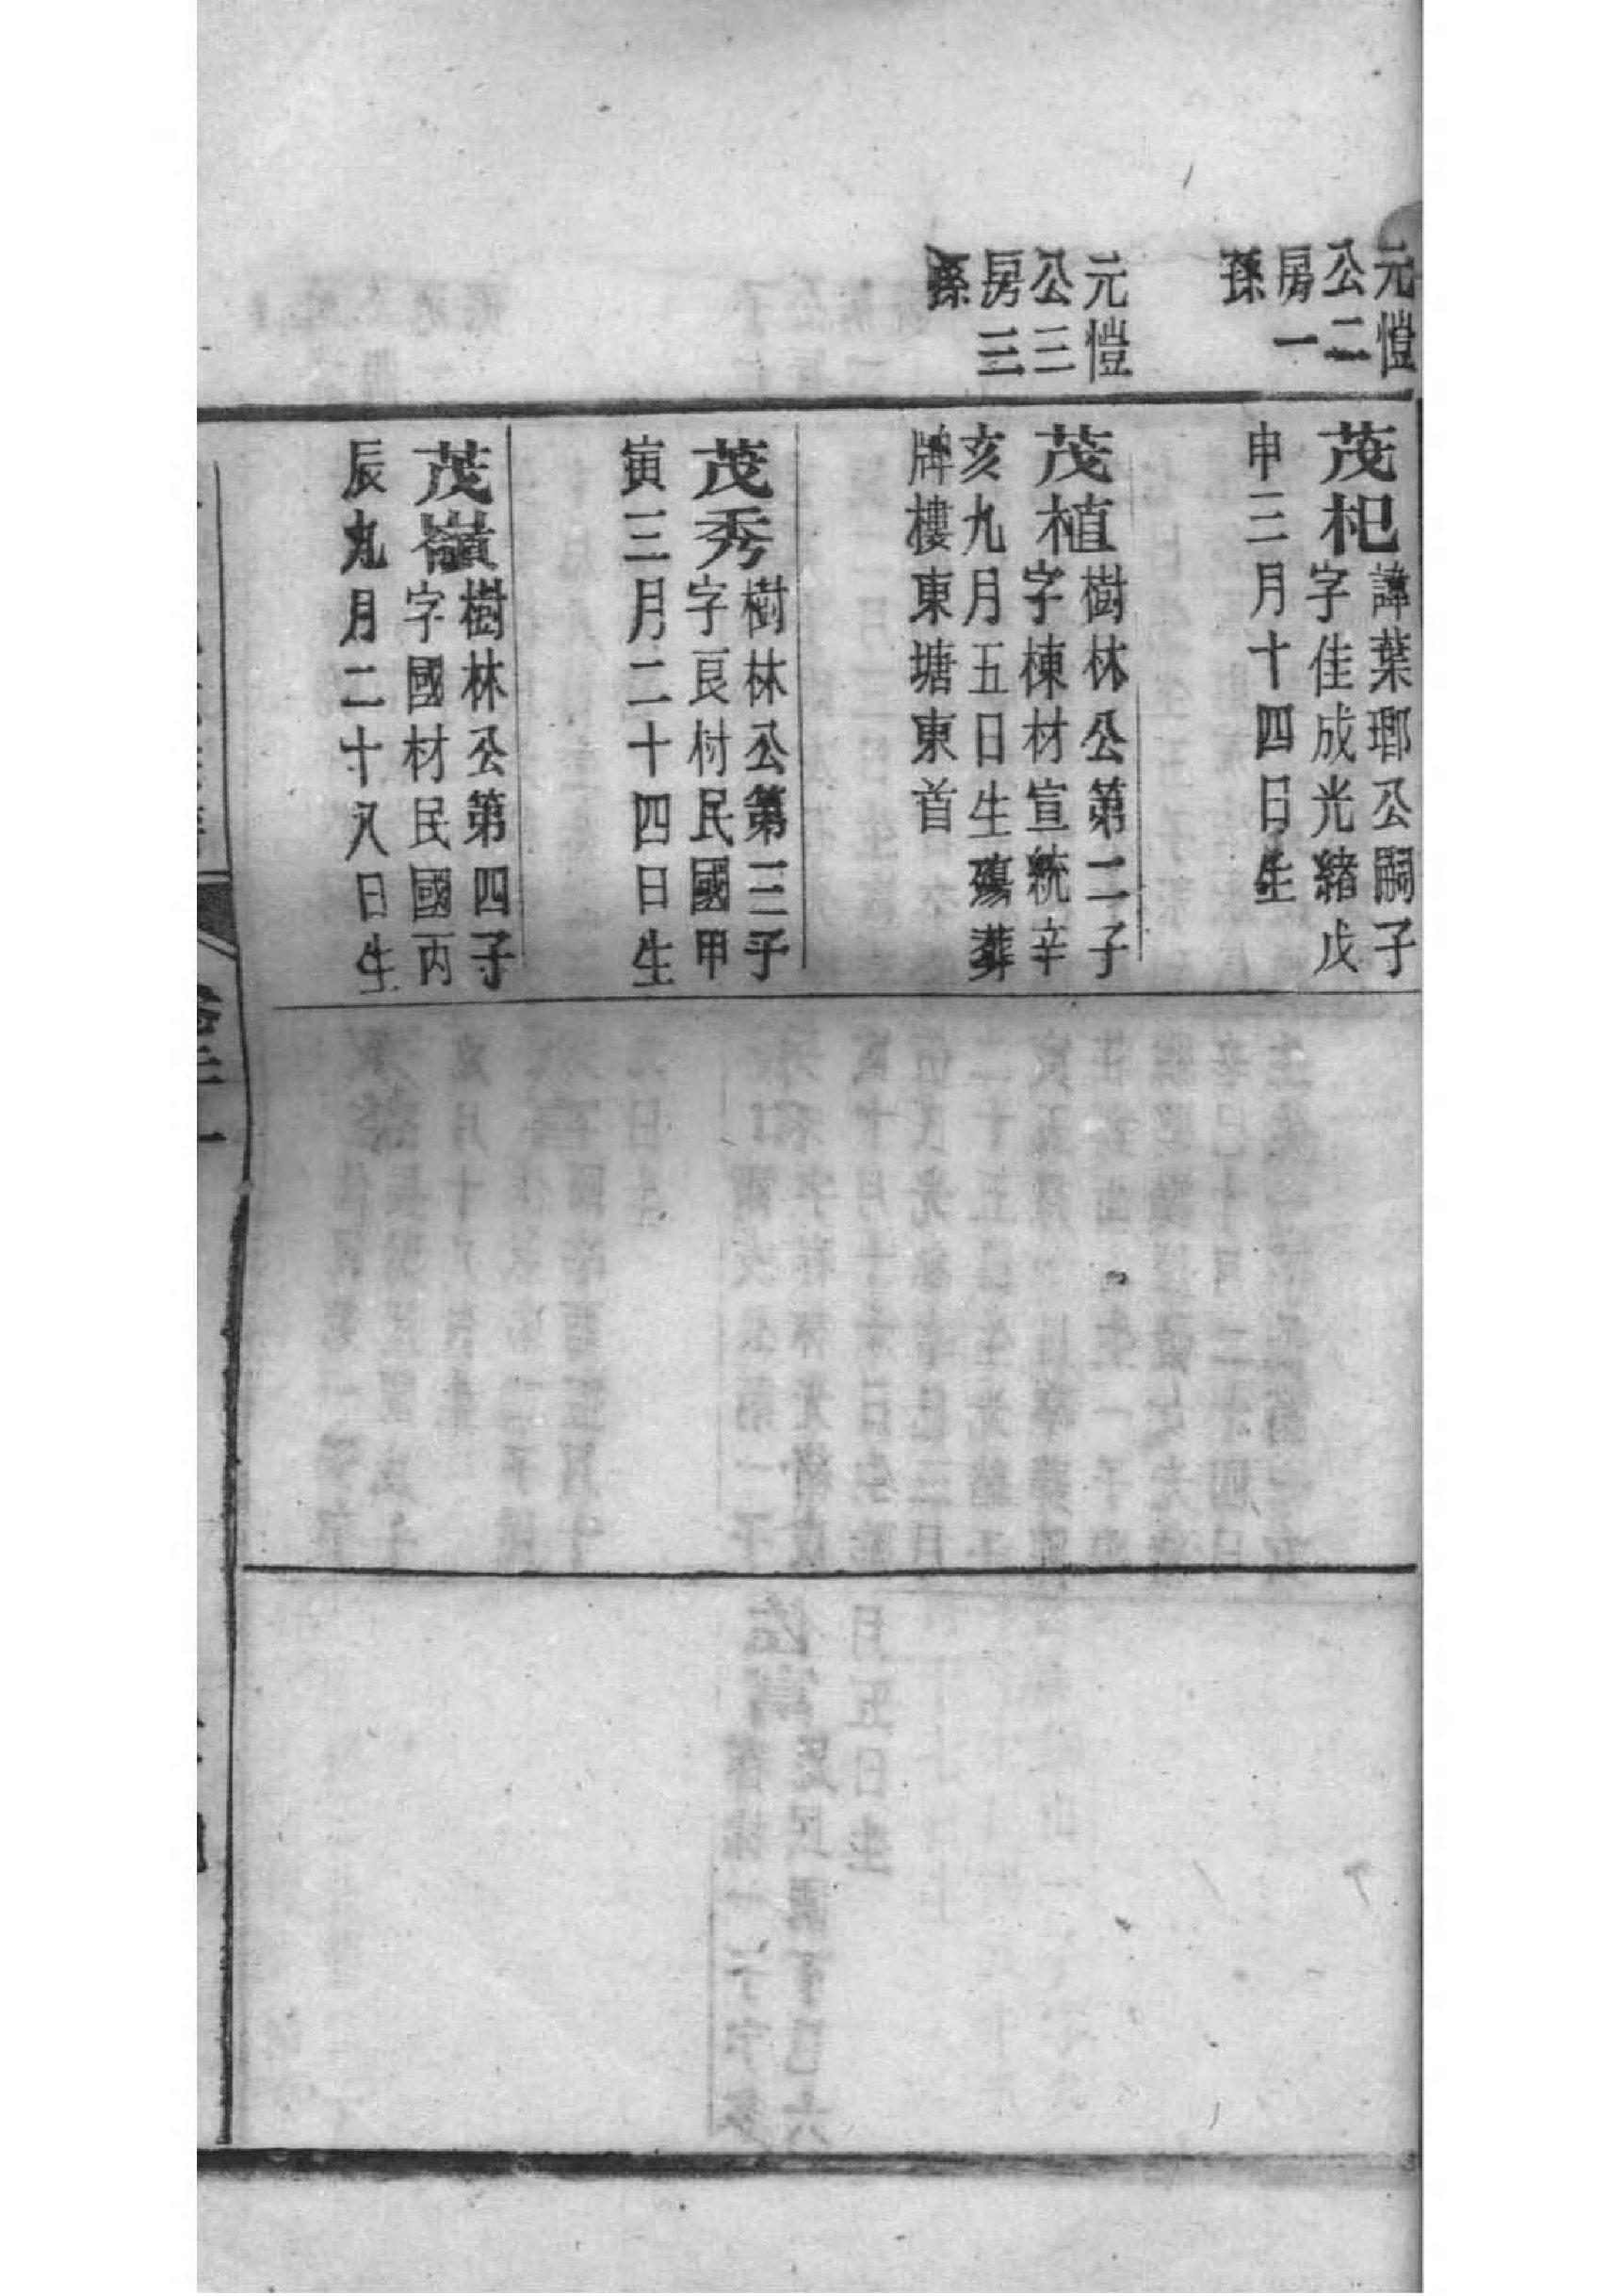 元愷
公二
房一
孫
元愷
公三
房三
孫
茂杞諱葉瑯公嗣子
字佳成光緒戊
申三月十四日生
茂植樹林公第二子
字棟材宣統辛
亥九月五日生殤葬
牌樓東塘東首
茂秀樹林公第三子
字良材民國甲
寅三月二十四日生
樹林公第四子
字國材民國丙
辰九月二十八日生